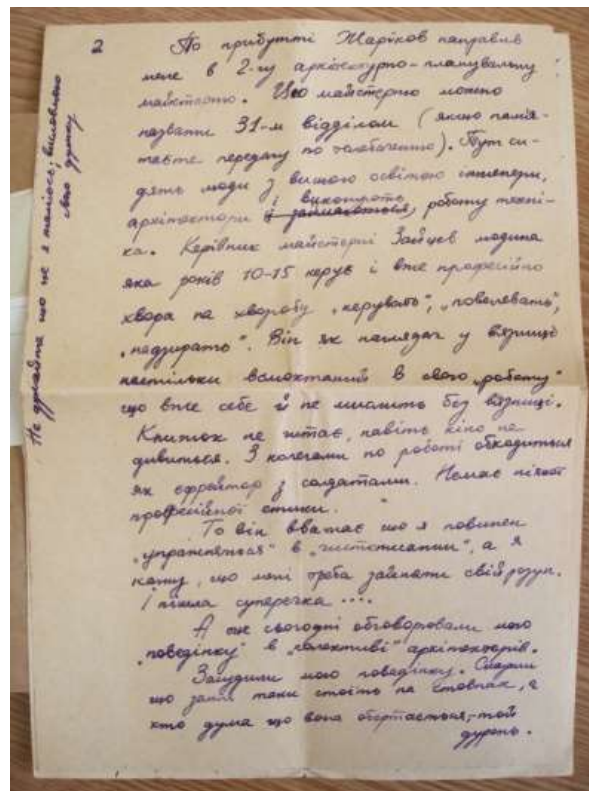 2
По прибутті Жаріков направив
мене в 2-гу архітектурно-планувальну
майстерню. Цю майстерню можно
назвати 31-м відділом (якщо памя-
таєте передачу по телебаченню). Тут си-
дять люди з вищою освітою інженери,
архітектори і виконують роботу техні-
ка. Керівник майстерні Зайцев людина
яка років 10-15 керує і вже професійно
хвора на хворобу „керувать", „повелевать",
„надзирать". Він як наглядач у вязниці
настільки всмоктаний в свою „роботу"
що вже себе й не мислить без вязниці.
Книжок не читає, навіть кіно не
дивиться. З колегами по роботі обходиться
як єфрейтор з солдатами. Немає ніякої
професійної етики.
То він вважає що я повинен
„упражняться" в „чистописании", а я
кажу, що мені треба зайняти свій розум.
І пішла суперечка ....
А оце сьогодні обговорювали мою
„поведінку" в „колективі" архітекторів.
Засудили мою поведінку. Сказали
що земля таки стоїть на стовпах, а
хто дума що вона обертається, – той
дурень.
Не думайте що не я таюсь, висловлюю
свою думку